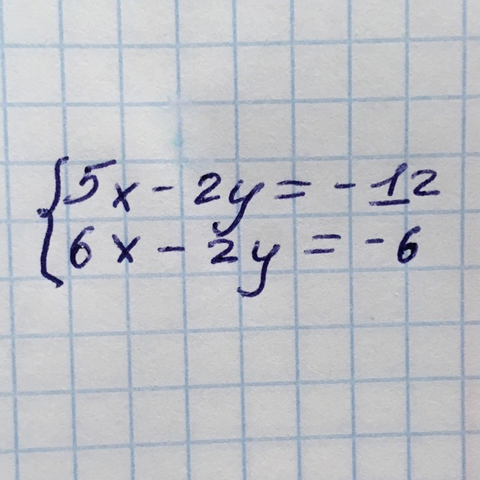 5x - 2y = -12
6x - 2y = -6